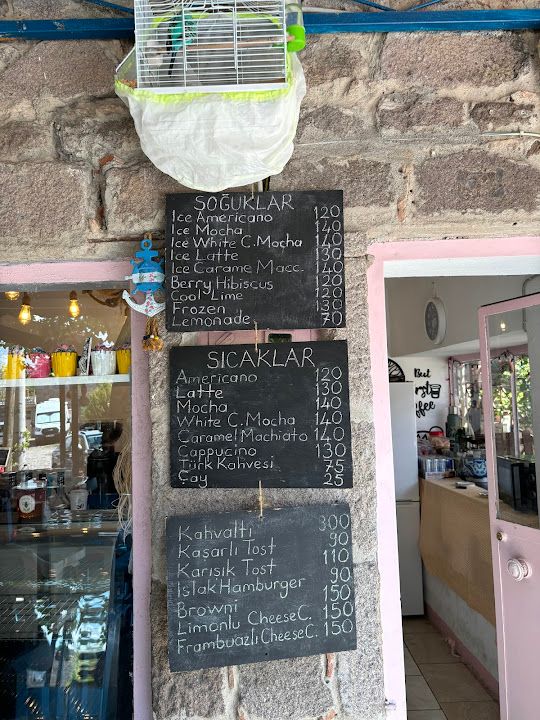 SOĞUKLAR
Ice Americano 120
Ice Mocha 140
Ice White C.Mocha 140
Ice Latte 130
Ice Carame Macc. 140
Berry Hibiscus 120
Cool Lime 120
Frozen 130
Lemonade 70
SICAKLAR
Americano 120
Latte 130
Mocha 140
White C.Mocha 140
Caramel Machiato 140
Cappucino 130
Türk Kahvesi 75
Çay 25
Kahvaltı 300
Kaşarlı Tost 90
Karışık Tost 110
Islak Hamburger 90
Browni 150
Limonlu CheeseC. 150
Frambuazlı CheeseC. 150
But
first
coffee